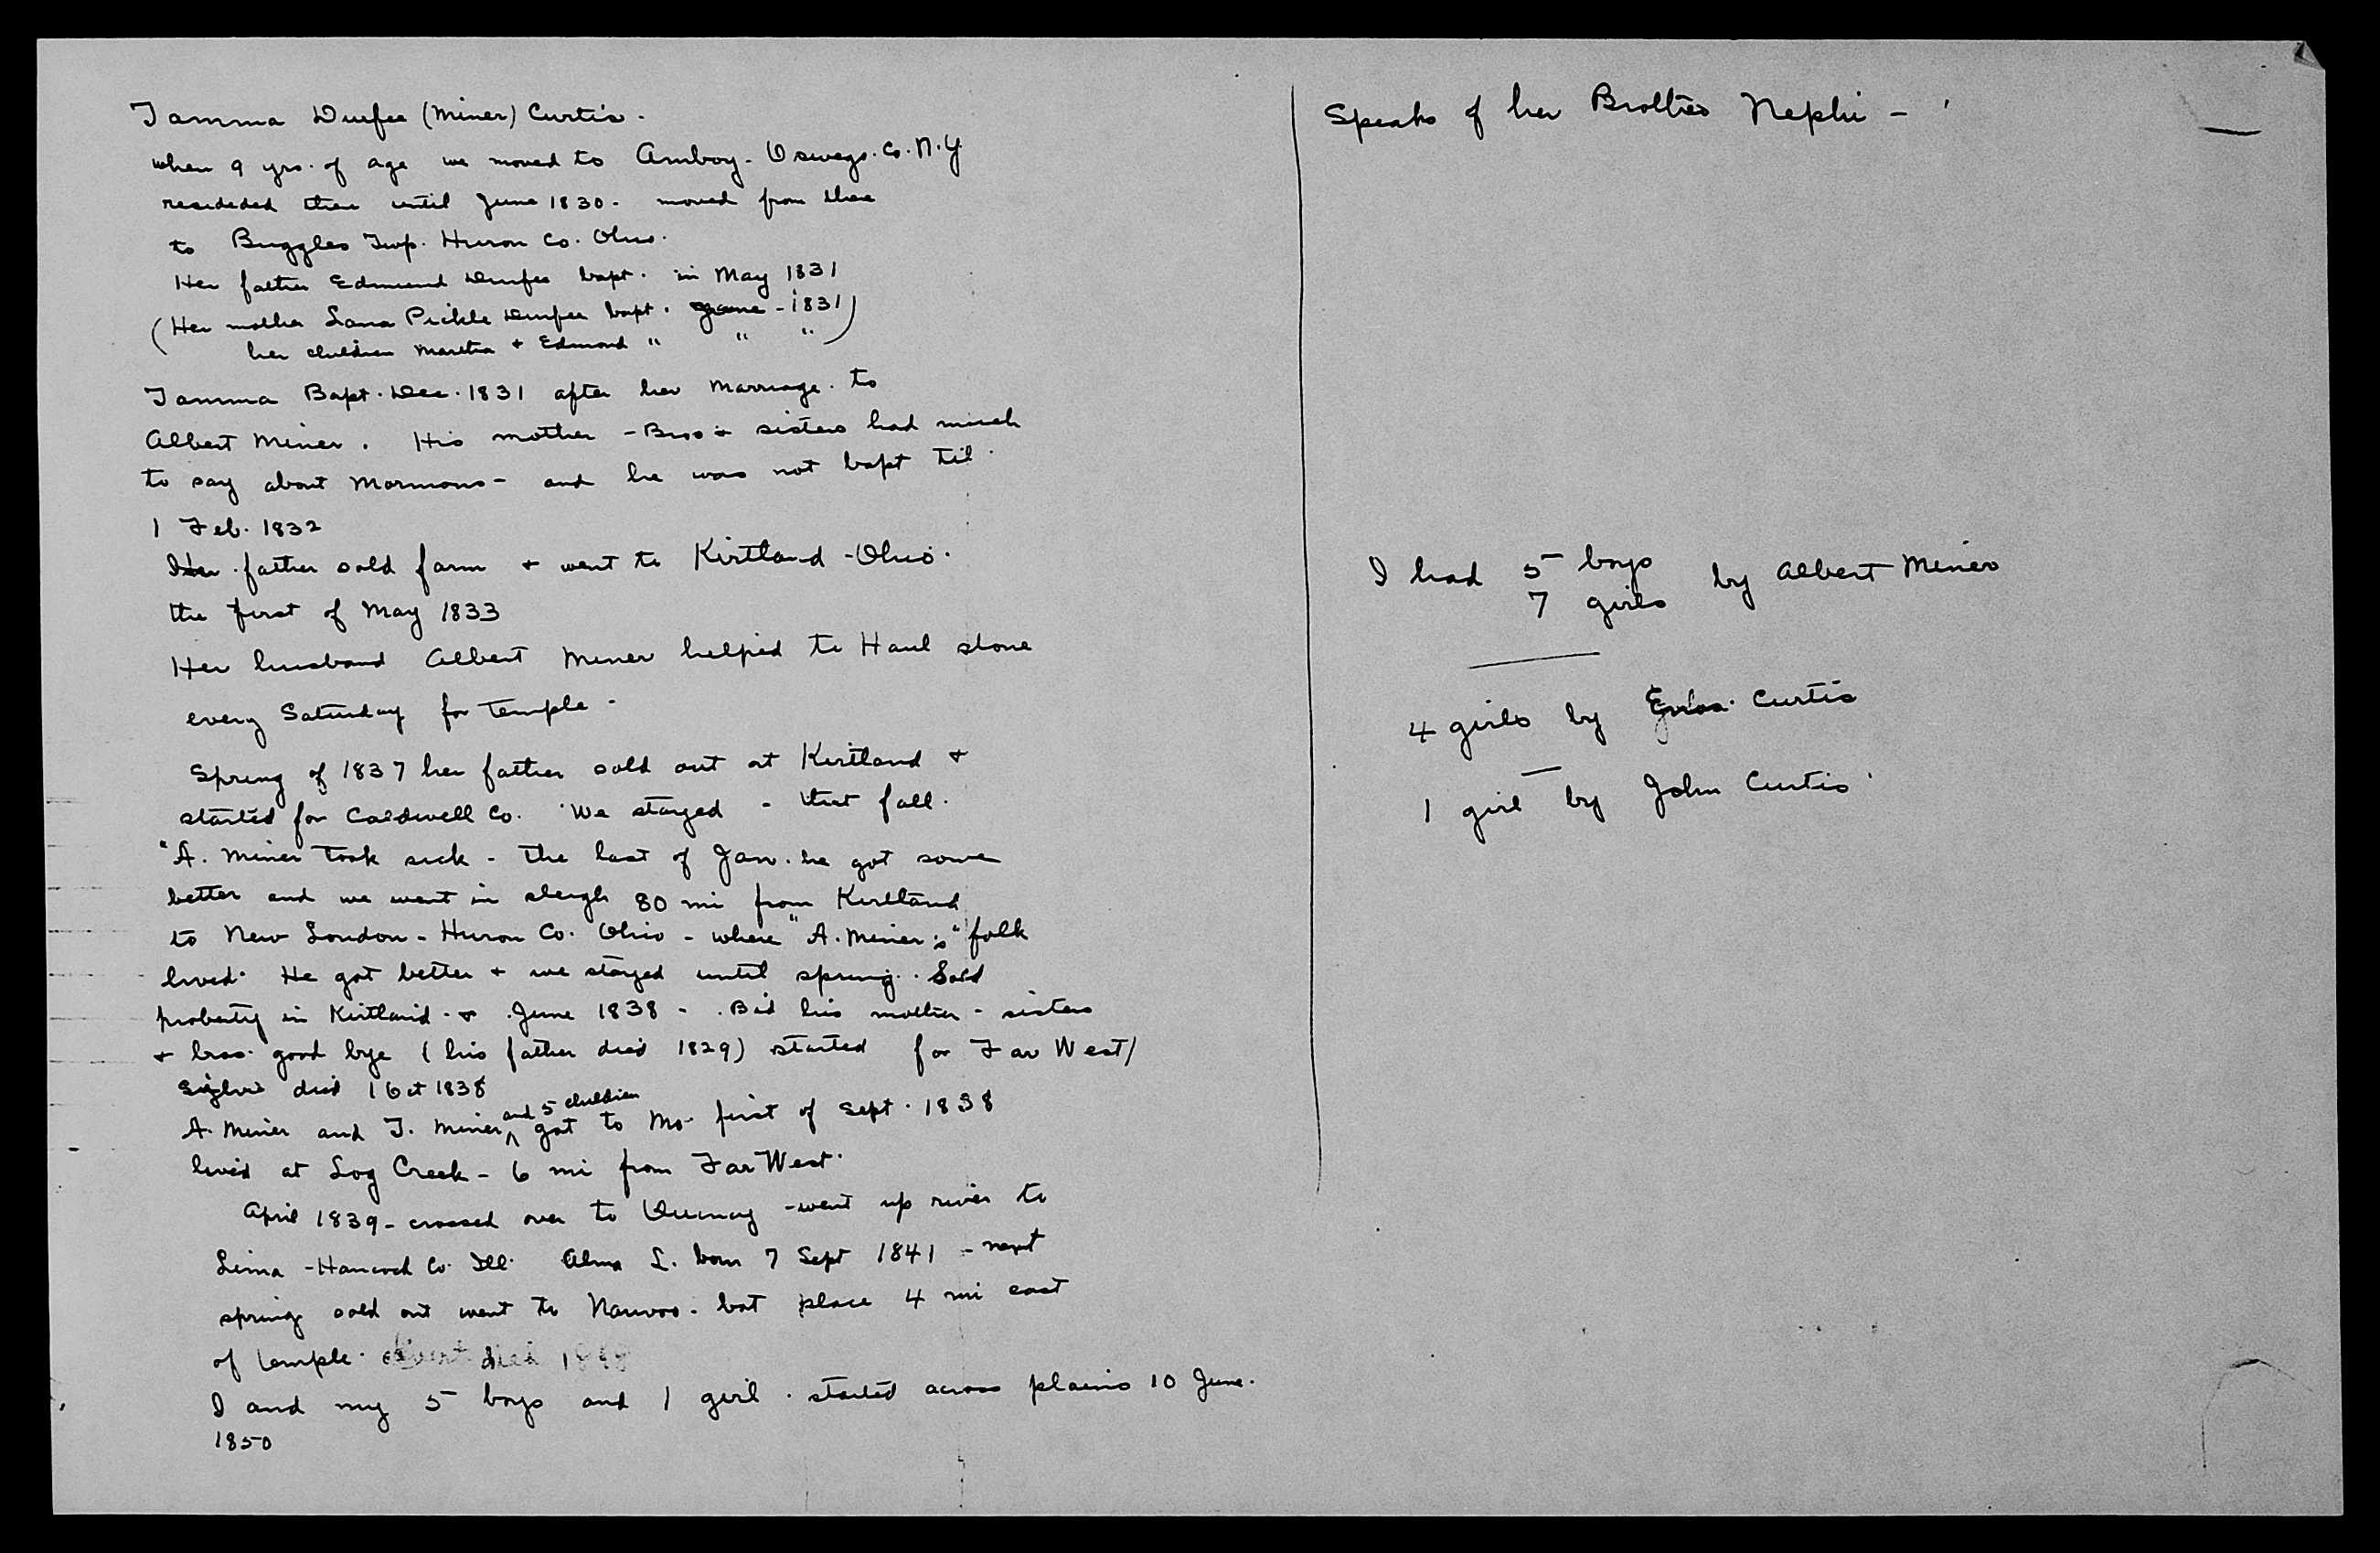 Tamma Durfee (Miner) Curtis.
when 9 yrs. of age we moved to Amboy. Oswego. Co. N.Y.
resideded there until June 1830. moved from there
to Buggles Twp. Huron Co. Ohio.
Her father Edmund Durfee bapt. in May 1831
(Her mother Lana Pickle Durfee bapt. June - 1831)
her children Martha + Edmond " " "
Tamma Bapt. Dec. 1831 after her marriage. to
Albert Miner. His mother - Bros + sisters had much
to say about Mormons - and he was not bapt til.
1 Feb. 1832
Her father sold farm + went to Kirtland - Ohio.
the first of May 1833
Her husband Albert Miner helped to Haul stone
every Saturday for Temple -
Spring of 1837 her father sold out at Kirtland +
started for Caldwell Co. "We stayed - that fall.
"A. Miner took sick - the last of Jan. he got some
better and we went in sleigh 80 mi from Kirtland
to New London - Huron Co. Ohio - where "A. Miner's" folk
lived. He got better + we stayed until spring. Sold
proberty in Kirtland. + June 1838 - Bid his mother - sisters
+ bros. good bye (his father died 1829) started for Far West/
died 1 Oct 1838
A. Miner and T. Miner and 5 children got to Mo. first of Sept. 1838
lived at Log Creek - 6 mi from Far West.
April 1839 - crossed over to Quincy - went up river to
Lima - Hancock Co. Ill. Alma L. born 7 Sept 1841 - next
spring sold out went to Nauvoo - bot place 4 mi east
of temple. Albert died 1848
I and my 5 boys and 1 girl. started across plains 10 June.
1850
Speaks of her Brother Nephi -
I had 5 boys
7 girls by Albert Miner
4 girls by Enos Curtis
1 girl by John Curtis